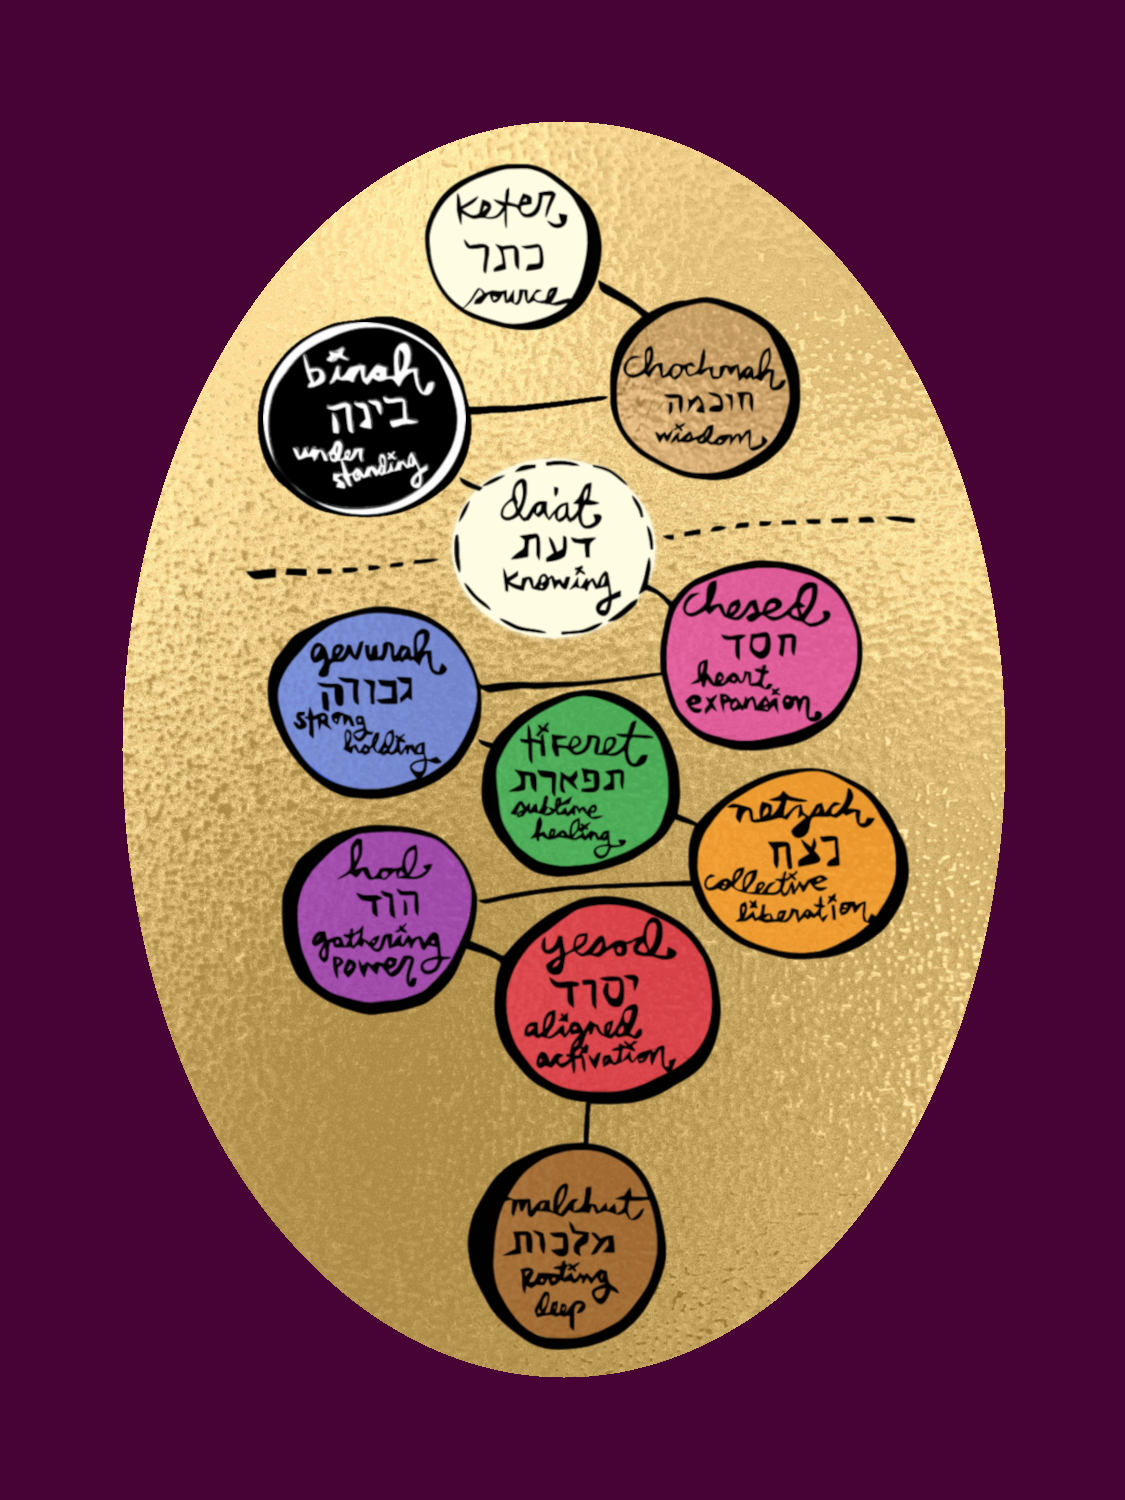 keter
כתר
source
chochmah
חוכמה
wisdom
binah
בינה
under
standing
da'at
דעת
knowing
chesed
חסד
heart
expansion
gevurah
גבורה
strong
holding
tiferet
תפארת
sublime
healing
netzach
נצח
collective
liberation
hod
הוד
gathering
power
yesod
יסוד
aligned
activation
malchut
מלכות
Rooting
deep